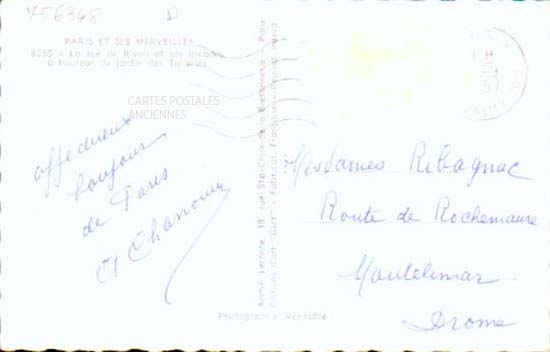 Y56368 D
PARIS ET SES MERVEILLES
8285 - La rue de Rivoli et ses arcades
à hauteur du jardin des Tuileries
CARTES POSTALES
ANCIENNES
affectueux
bonjour
de Paris
André Leconte, 38 rue Ste-Croix-de-la-Bretonnerie - Paris
Editions d'Art "GUY" - Fabrication Française -
Photographie Véritable
57
Mesdames Ribagnac
Route de Rochemaure
Montélimar
Drome